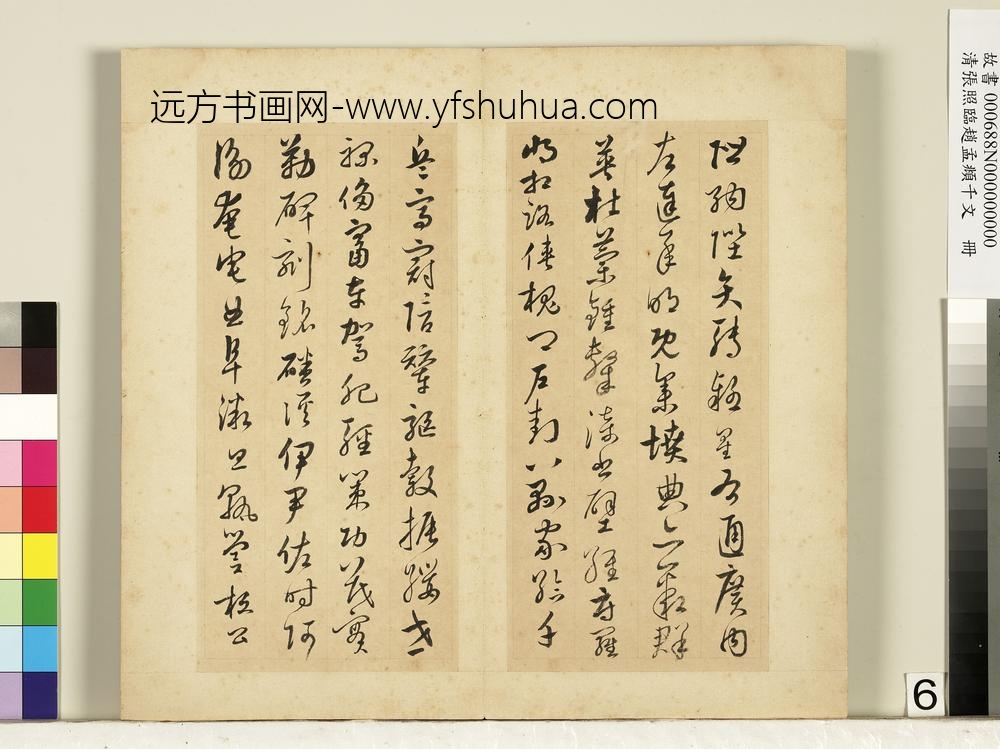 远方书画网-www.yfshuhua.com
故書 000688N000000000
清張照臨趙孟頫千文 冊
階納陛弁轉疑星右通廣內
左達承明既集墳典亦聚群
英杜稾鍾隸漆書壁經府羅
將相路俠槐卿戶封八縣家給千
兵高冠陪輦驅轂振纓世
祿侈富車駕肥輕策功茂實
勒碑刻銘磻溪伊尹佐時阿
衡奄宅曲阜微旦孰營桓公
6